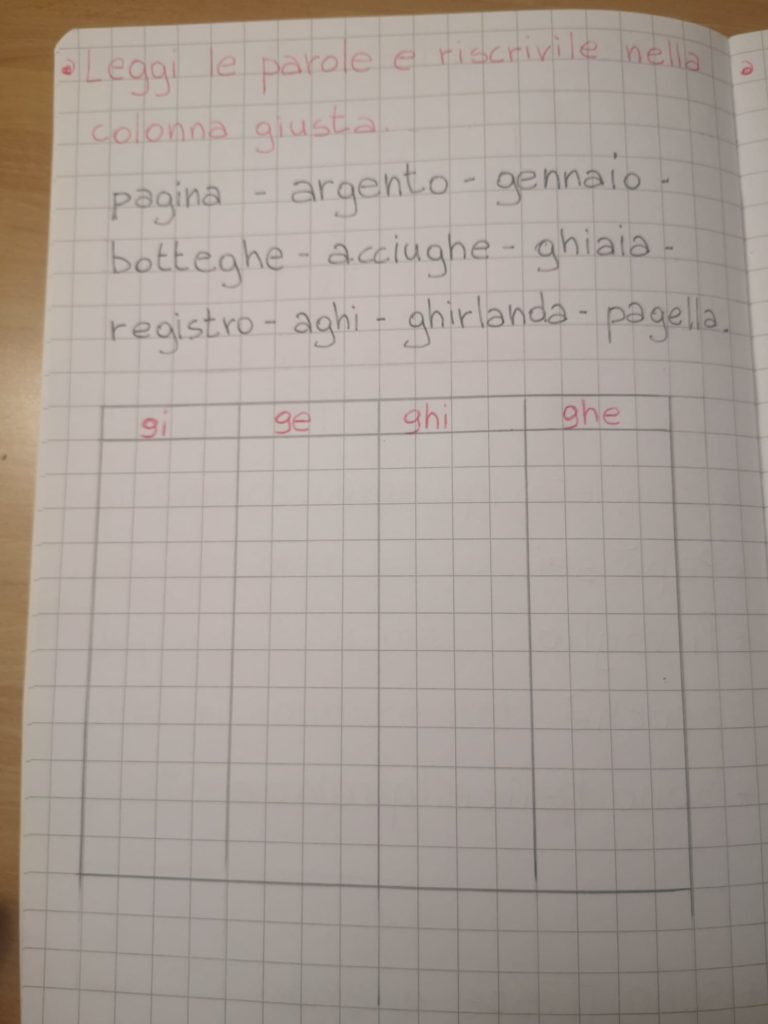 Leggi le parole e riscrivile nella
colonna giusta.
pagina - argento - gennaio -
botteghe - acciughe - ghiaia -
registro - aghi - ghirlanda - pagella.
gi ge ghi ghe